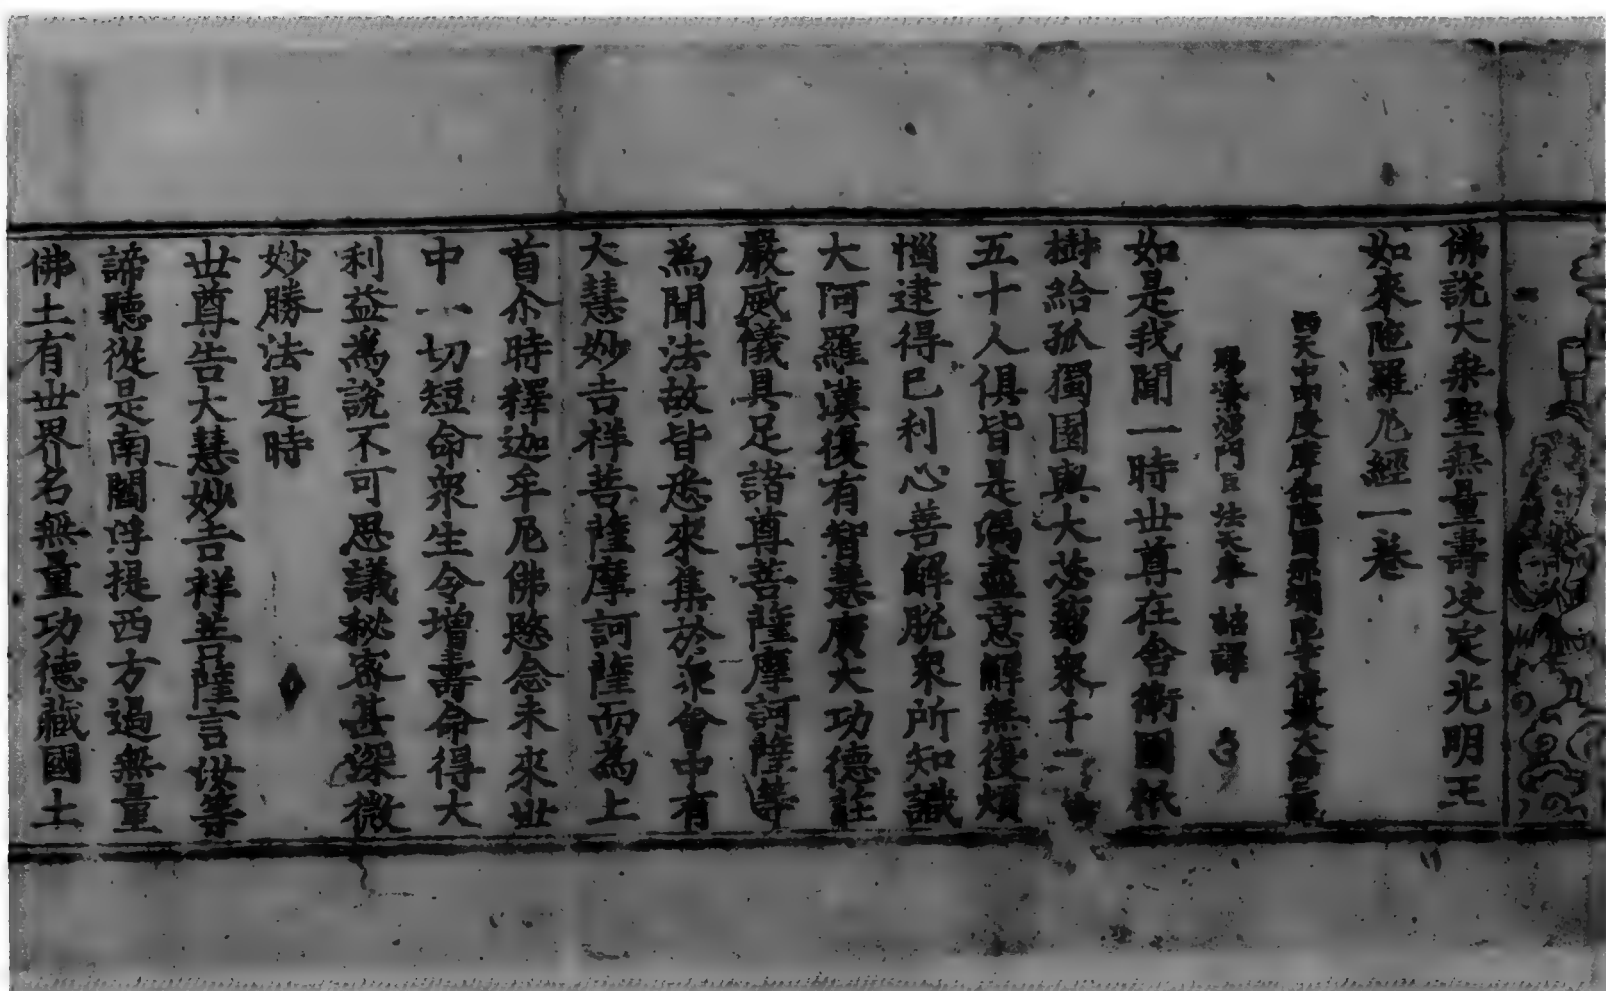 佛說大乗聖無量壽决定光明王
如來陁羅尼經一卷
西天中印度摩伽陁國那爛陁寺傳教大師三藏
賜紫沙門臣法天奉 詔譯
如是我聞一時世尊在舍衛國祇
樹給孤獨園與大苾蒭衆千二
五十人俱皆是漏盡意解無復煩
惱逮得己利心善解脫衆所知識
大阿羅漢復有智慧廣大功德莊
嚴威儀具足諸尊菩薩摩訶薩等
為聞法故皆悉來集於衆會中有
大慧妙吉祥菩薩摩訶薩而為上
首尒時釋迦牟尼佛愍念未來世
中一切短命衆生令增壽命得大
利益為說不可思議秘密甚深微
妙勝法是時
世尊告大慧妙吉祥菩薩言汝等
諦聽從是南閻浮提西方過無量
佛土有世界名無量功德藏國土